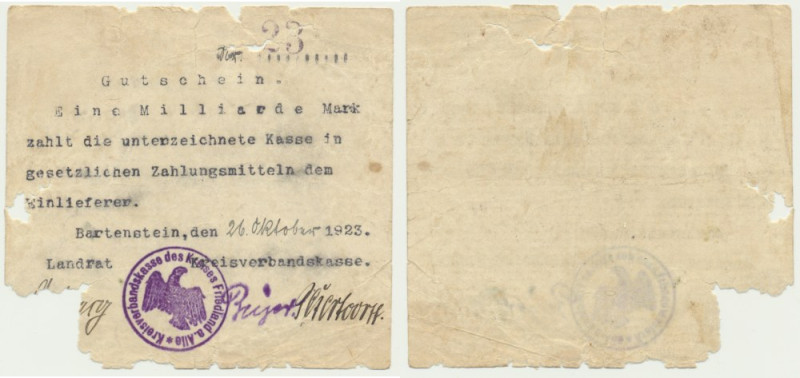 Nr. 23
Gutschein.
Eine Milliarde Mark
zahlt die unterzeichnete Kasse in
gesetzlichen Zahlungsmitteln dem
Einlieferer.
Bartenstein, den 26. Oktober 1923.
Landrat Kreisverbandskasse.
Kreisverbandskasse des Kreises Friedland a. Alle